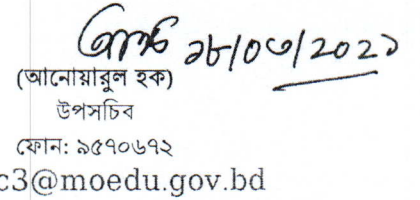 ১৮/০৩/২০২১
(আনোয়ারুল হক)
উপসচিব
ফোন: ৯৫৭০৬৭২
c3@moedu.gov.bd